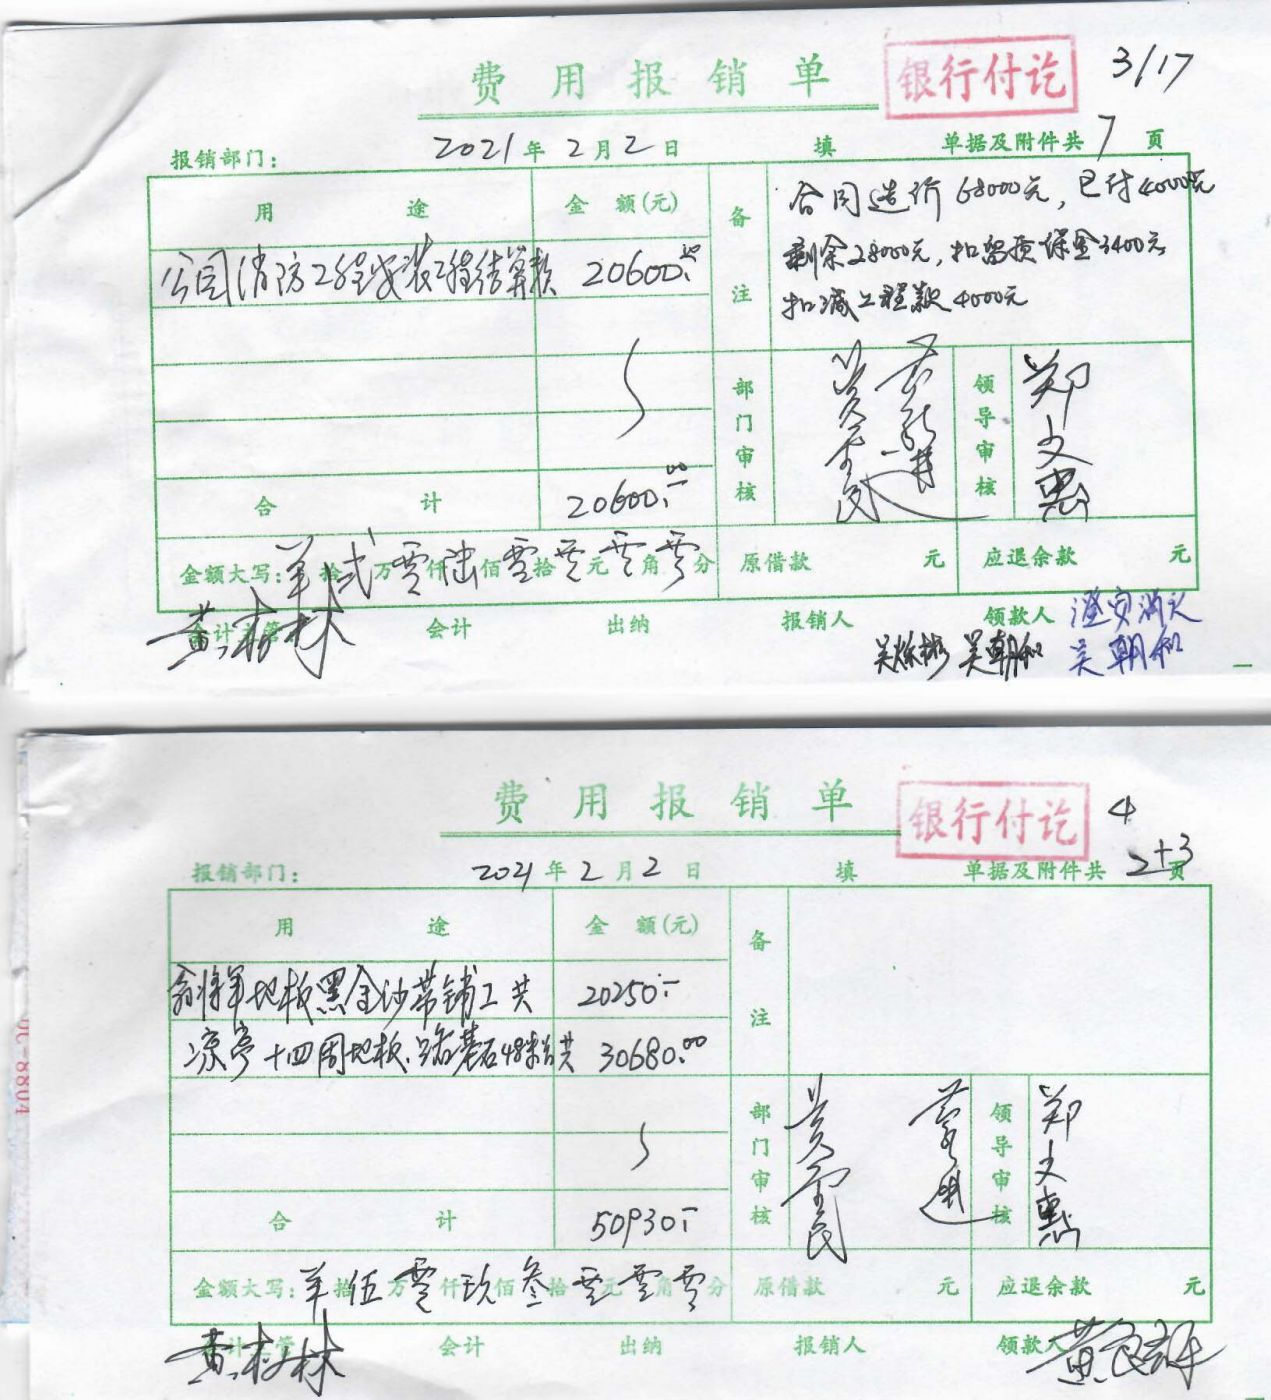 费用报销单 银行付讫 3/17
报销部门: 2021年2月2日 填 单据及附件共7页
用途 金额(元) 备注
合同造价68000元，已付40000元
剩余28000元，扣留质保金3400元
扣减工程款4000元
公园消防工程安装工程结算款 20600.00
合计 20600.00
部门审核 领导审核 郑文惠
金额大写: 羊拾贰万零仟陆佰零拾零元零角零分 原借款 元 应退余款 元
会计主管 会计 出纳 报销人 领款人 澄安消火
黄树林 吴朝和 吴朝和
费用报销单 银行付讫 4
报销部门: 2021年2月2日 填 单据及附件共2+3页
用途 金额(元) 备注
翁将军地板黑金沙带铺工共 20250.-
凉亭十四周地板、踏基石48米台共 30680.00
合计 50930.-
部门审核 领导审核 郑文惠
金额大写: 羊拾伍万零仟玖佰叁拾零元零角零分 原借款 元 应退余款 元
会计主管 会计 出纳 报销人 领款人
黄树林
UC-8804